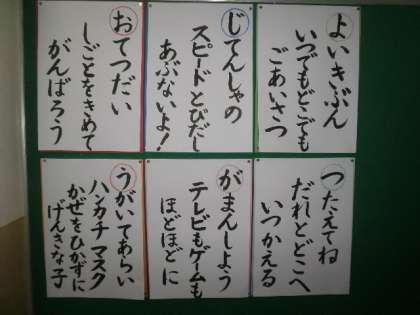 よいきぶん
いつでもどこでも
ごあいさつ
じてんしゃの
スピードとびだし
あぶないよ!
おてつだい
しごとをきめて
がんばろう
つたえてね
だれとどこへ
いつかえる
がまんしよう
テレビもゲームも
ほどほどに
うがいてあらい
ハンカチ マスク
かぜをひかずに
げんきな子